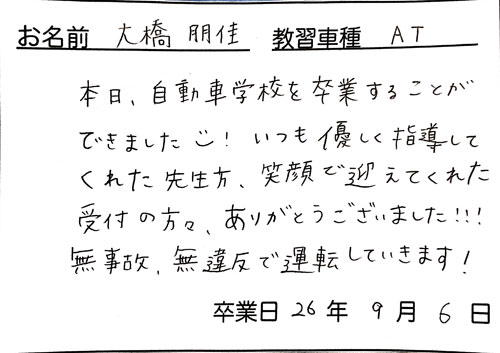 お名前 大橋 朋佳 教習車種 AT
本日、自動車学校を卒業することが
できました!いつも優しく指導して
くれた先生方、笑顔で迎えてくれた
受付の方々、ありがとうございました!!!
無事故、無違反で運転していきます!
卒業日 26年 9月 6日